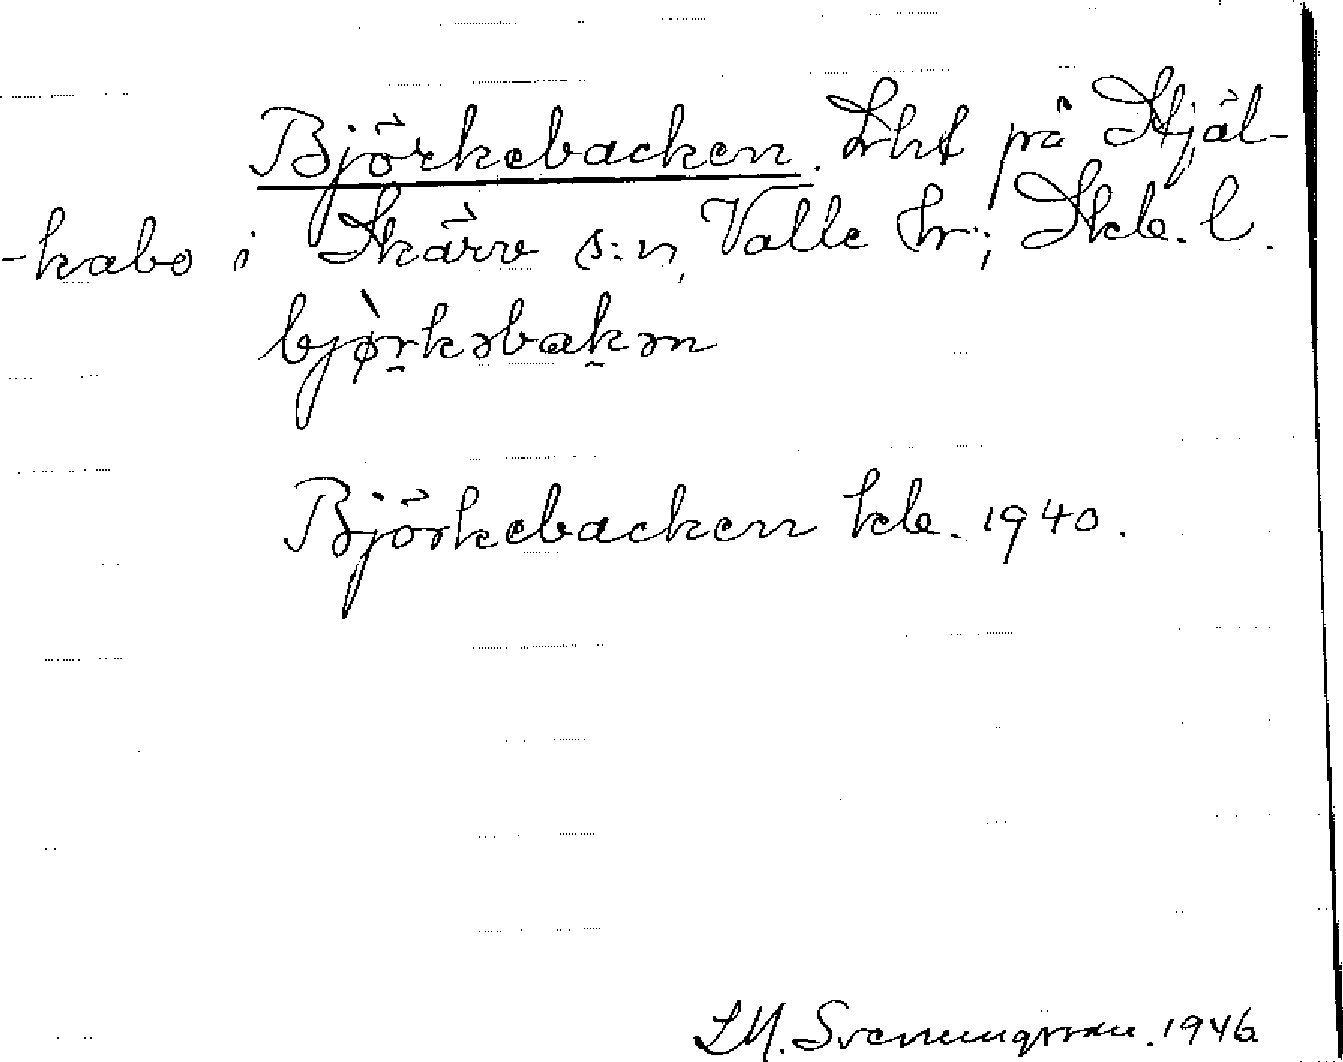 Björkebacken. Lht på Stjäl-
-kabo i Skärv s:n, Valle hr; Skb. l.
bjø̀rkəbakən
Björkebacken kb. 1940.
S. Svenningsson. 1946